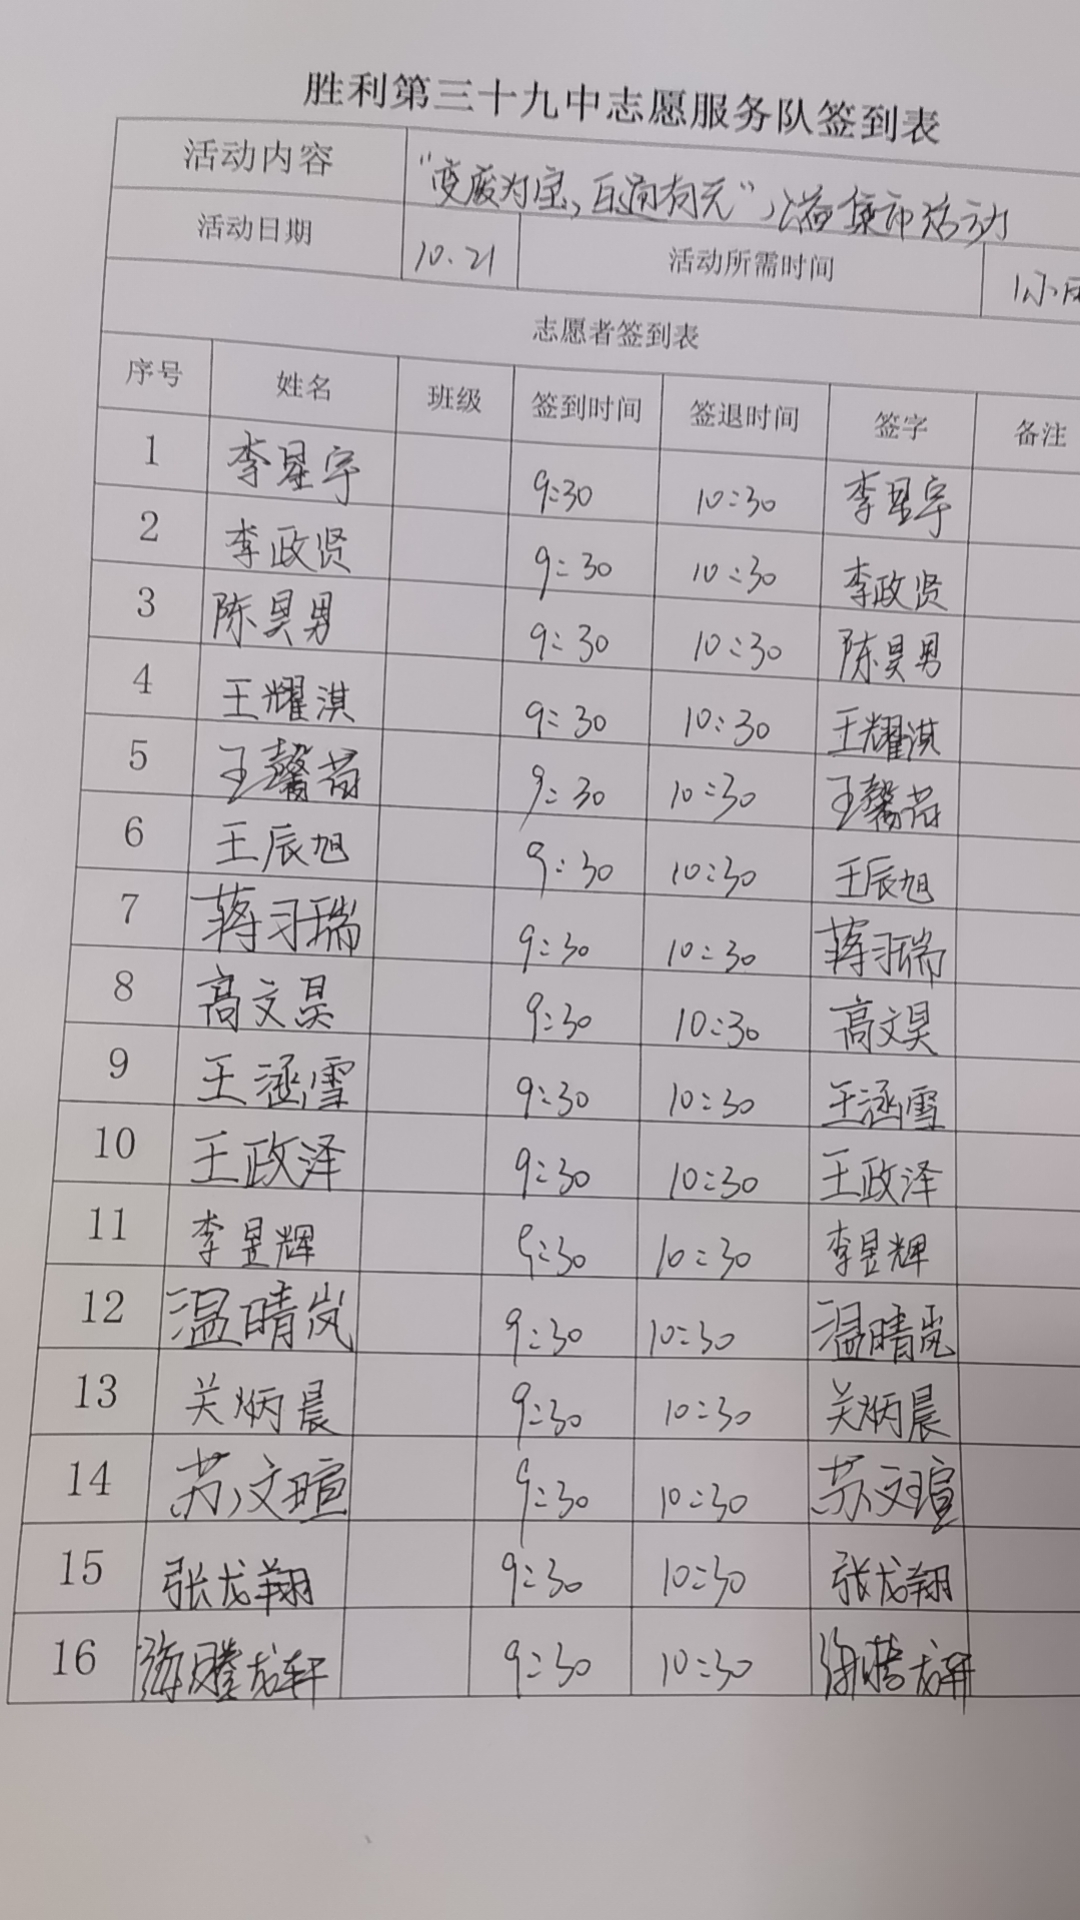 胜利第三十九中志愿服务队签到表
活动内容 “变废为宝,互通有无”公益集市活动
活动日期 10.21 活动所需时间 1小
志愿者签到表
序号 姓名 班级 签到时间 签退时间 签字 备注
1 李星宇 9:30 10:30 李星宇
2 李政贤 9:30 10:30 李政贤
3 陈昊男 9:30 10:30 陈昊男
4 王耀淇 9:30 10:30 王耀淇
5 王馨苒 9:30 10:30 王馨苒
6 王辰旭 9:30 10:30 王辰旭
7 蒋习瑞 9:30 10:30 蒋习瑞
8 高文昊 9:30 10:30 高文昊
9 王涵雪 9:30 10:30 王涵雪
10 王政泽 9:30 10:30 王政泽
11 李昱辉 9:30 10:30 李昱辉
12 温晴岚 9:30 10:30 温晴岚
13 关炳晨 9:30 10:30 关炳晨
14 苏文瑄 9:30 10:30 苏文瑄
15 张龙翔 9:30 10:30 张龙翔
16 9:30 10:30